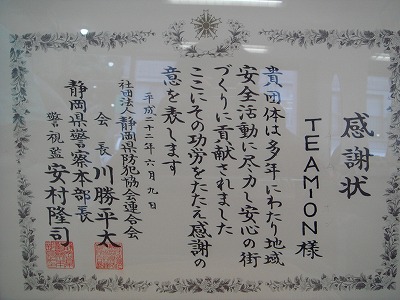 感謝状
TEAMION様
貴団体は多年にわたり地域
安全活動に尽力し安心の街
づくりに貢献されました
ここにその功労をたたえ感謝の
意を表します
平成二十二年六月九日
社団法人静岡県防犯協会連合会
会長川勝平太
静岡県警察本部長
警視監安村隆司